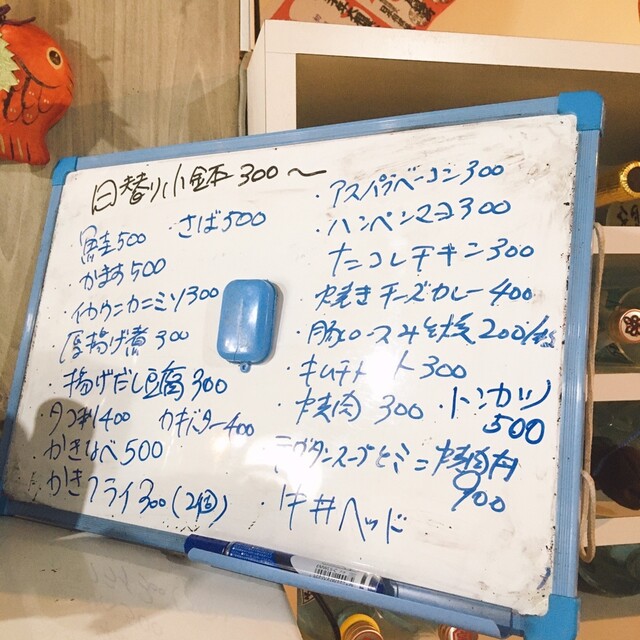 日替り小鉢 300〜
・さば500
かまあ500
・イカウニカニミソ300
厚揚げ煮 300
・揚げだし豆腐300
・タコ刺400 カキバター400
・かきなべ500
・かきフライ300(2個)
・アスパラベーコン300
・ハンペンマヨ300
300
・焼きチーズカレー400
・豚ロースみそ焼200/
・キムチトマト300
・焼肉 300 ・トンカツ
500
ミニ焼肉丼
900
ヘッド